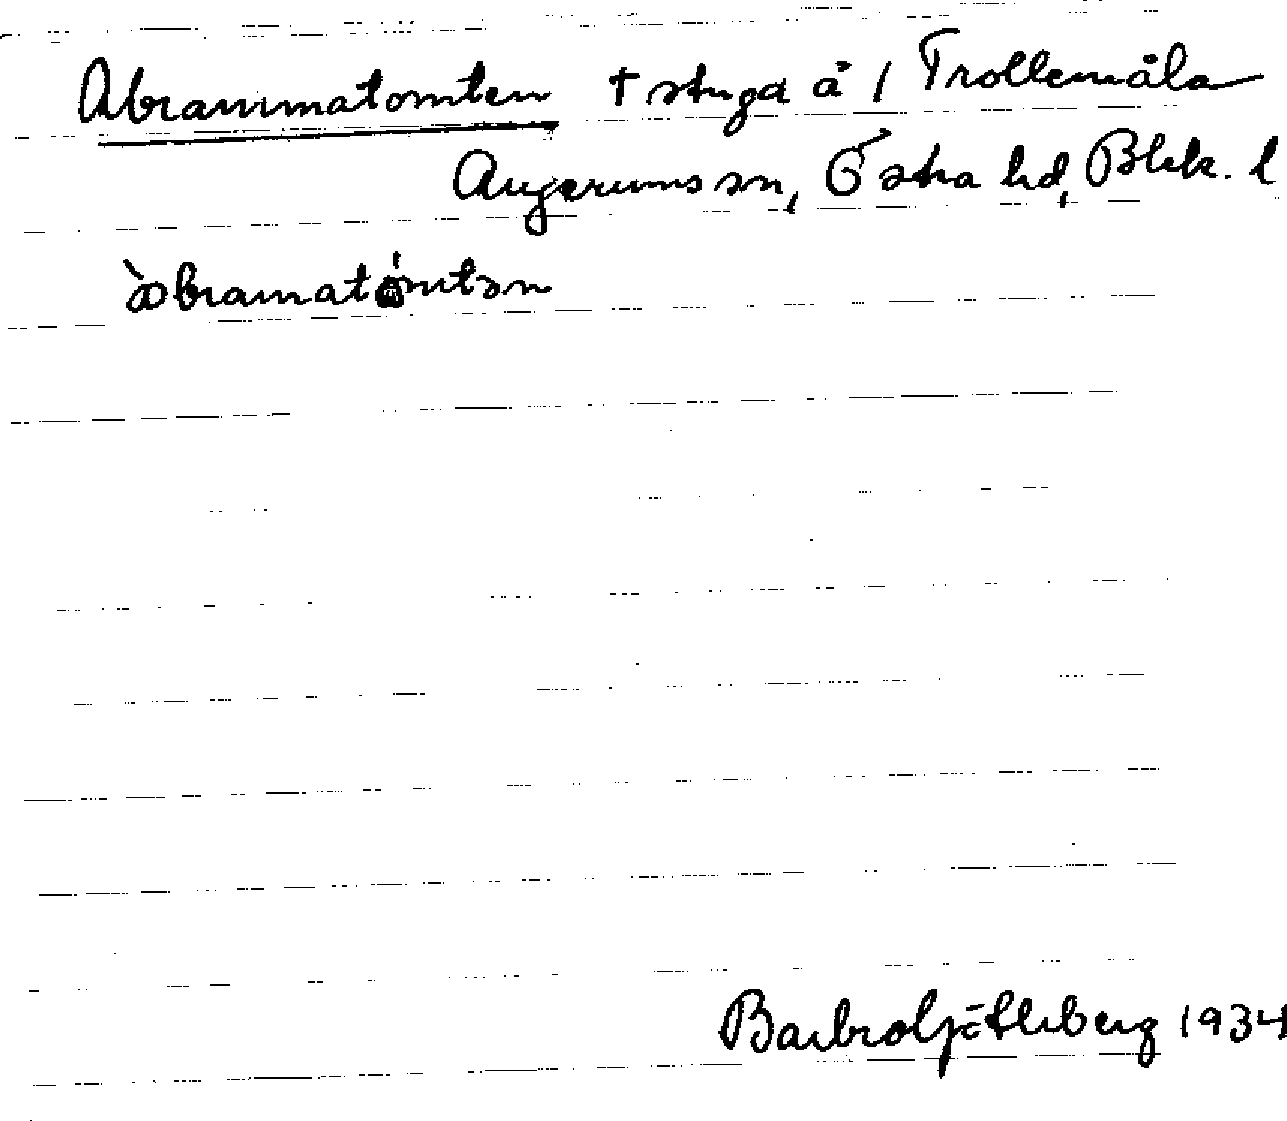 Abrammatomten † stuga å 1 Trollemåla
Augerums sn, Östra hd, Blek. l
Barbro 1934